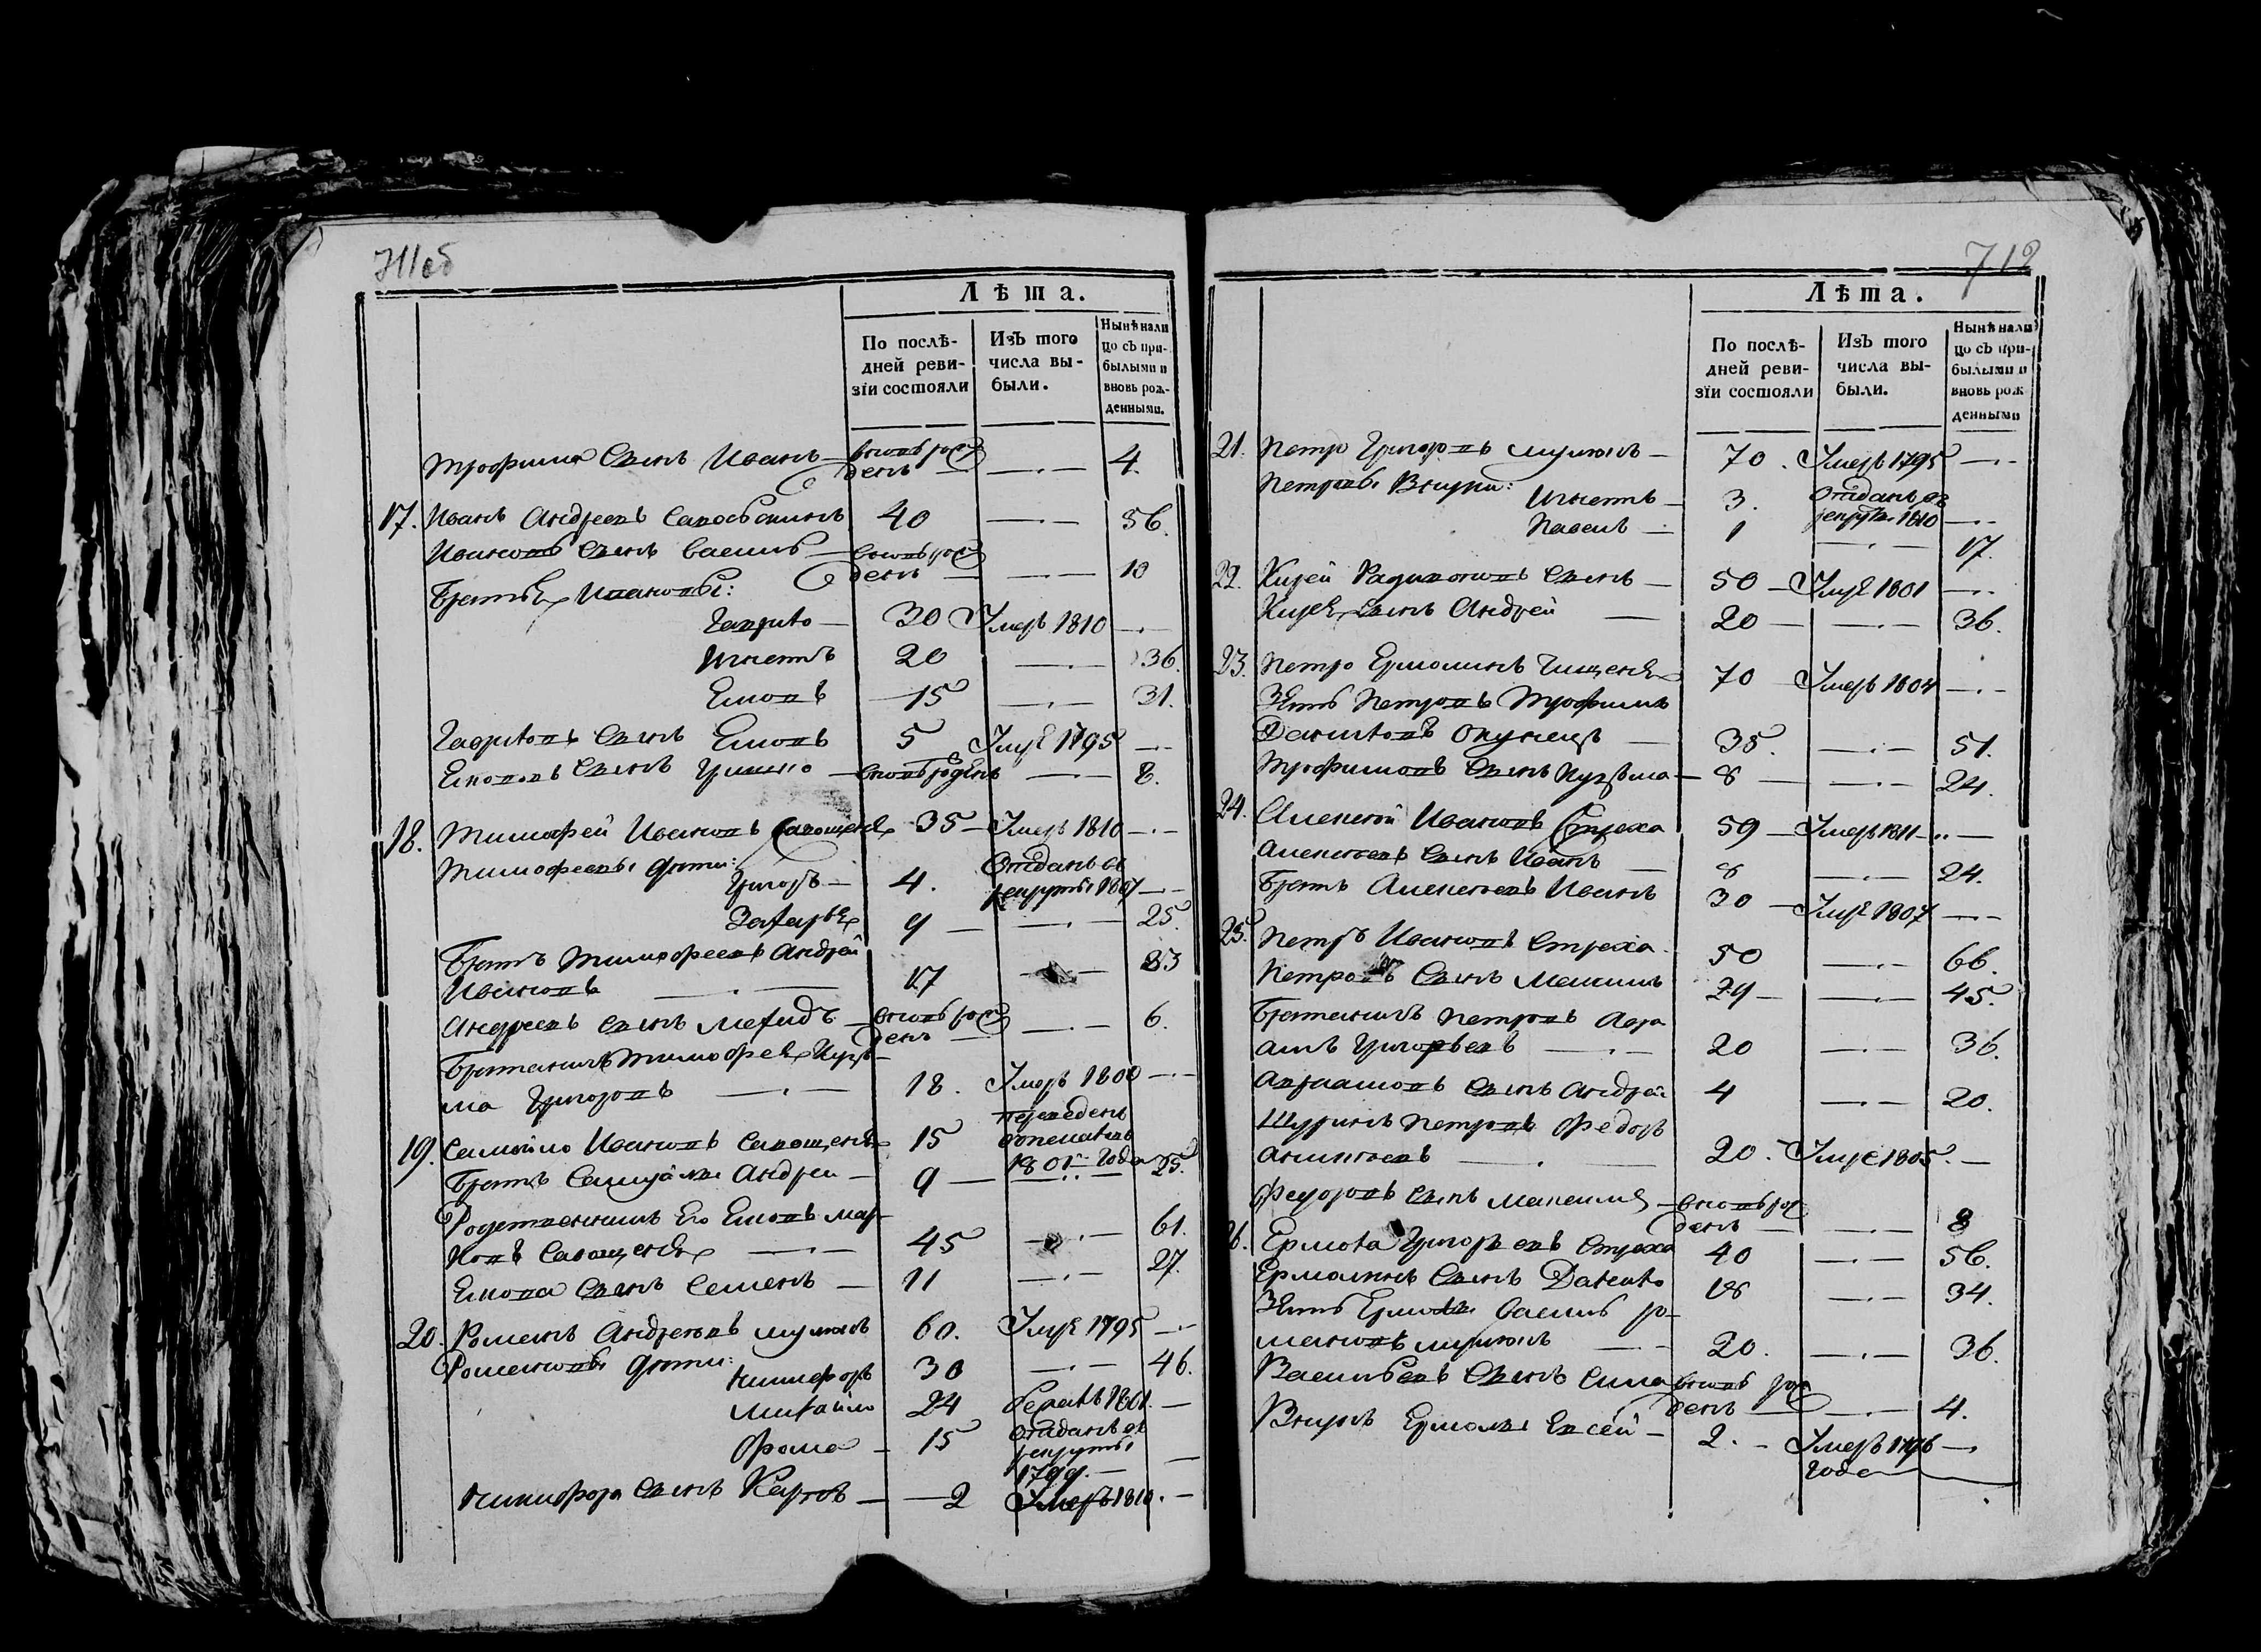 711об
Лѣта.
По послѣ-
дней реви-
зїи состояли
Изъ того
числа вы-
были.
Нынѣ нали
цо съ при-
былыми и
вновь рож-
денными.
Трофима Сынъ Иванъ — вновь рож
денъ — 4.
17. Иванъ Андреевъ 40 — 56.
Ивановъ Сынъ Василь — вновь рож
денъ — 10
Братья Ивановы:
Гаврило — 30 Умеръ 1810 —
Игнатъ 20 — 36.
Емонъ — 15 — 31.
Гавриловъ Сынъ Емонъ 5 Умре 1795 —
Сынъ Гришко — вновь роденъ — 8.
18. Тимофей Ивановъ Савощенко 35 — Умеръ 1810 —
Тимофеевы дѣти:
Григоръ — 4. Отданъ въ
рекруты 1807 —
Захарья 9 — 25.
Братъ Тимофеевъ Андрей
Ивановъ — 17 — 33
Андреевъ Сынъ — вновь рож
денъ — 6.
Братаничъ Тимофея Кузь-
ма Григоровъ — 18. Умеръ 1800 —
19. Самойло Ивановъ Савощенко 15 переведенъ
1801 года
Братъ Самуйлы Андрей — 9 — 25.
Родственникъ Его Емонъ Мар-
ковъ Савощенко — 45 — 61.
Емона Сынъ Семенъ — 11 — 27.
20. Романъ Андреевъ 60. Умре 1795 —
Романовы дѣти:
Никифоръ 30 — 46.
Михайло 24 бежалъ 1801. —
Фома — 15 Отданъ въ
рекруты
1799. —
Никифора Сынъ Карпъ — 2 Умеръ 1810. —
712
Лѣта.
По послѣ-
дней реви-
зїи состояли
Изъ того
числа вы-
были.
Нынѣ нали
цо съ при-
былыми и
вновь рож
денными
21. Петро Григоровъ — 70. Умеръ 1795 —
Петровы Внуки:
Игнатъ — 3. Отданъ въ
рекруты 1810 —
Павелъ — 1 — 17.
22. Кирей Радионовъ Сынъ — 50 — Умре 1801 —
Кирея Сынъ Андрей — 20 — 36.
23. Петро Ермолинъ Тищенко 70 Умеръ 1804 —
Зять Петровъ Трофимъ
Даниловъ — 35. — 51.
Трофимовъ Сынъ Кузьма — 8 — 24.
24. Алексей Ивановъ Стреха 59 — Умеръ 1811 —
Алексеевъ Сынъ Иванъ — 8 — 24.
Братъ Алексеевъ Иванъ 30 — Умре 1807 —
25. Петръ Ивановъ Стреха 50 — 66.
Петровъ Сынъ Максимъ 29 — 45.
Братаничъ Петровъ Авра
амъ Григорьевъ — 20 — 36.
Авраамовъ Сынъ Андрей 4 — 20.
Шуринъ Петровъ Федоръ
— 20. Умре 1805. —
Федоровъ Сынъ Максимъ — вновь рож
денъ — 8
26. Ермола Григорьевъ Стреха 40 — 56.
Ермолинъ Сынъ Данило 18 — 34.
Зять Ермолы Василь Ро-
мановъ — 20. — 36.
Васильевъ Сынъ вновь рож
денъ — 4.
Внукъ Ермолы Евсей — 2. — Умеръ 1796 —
года